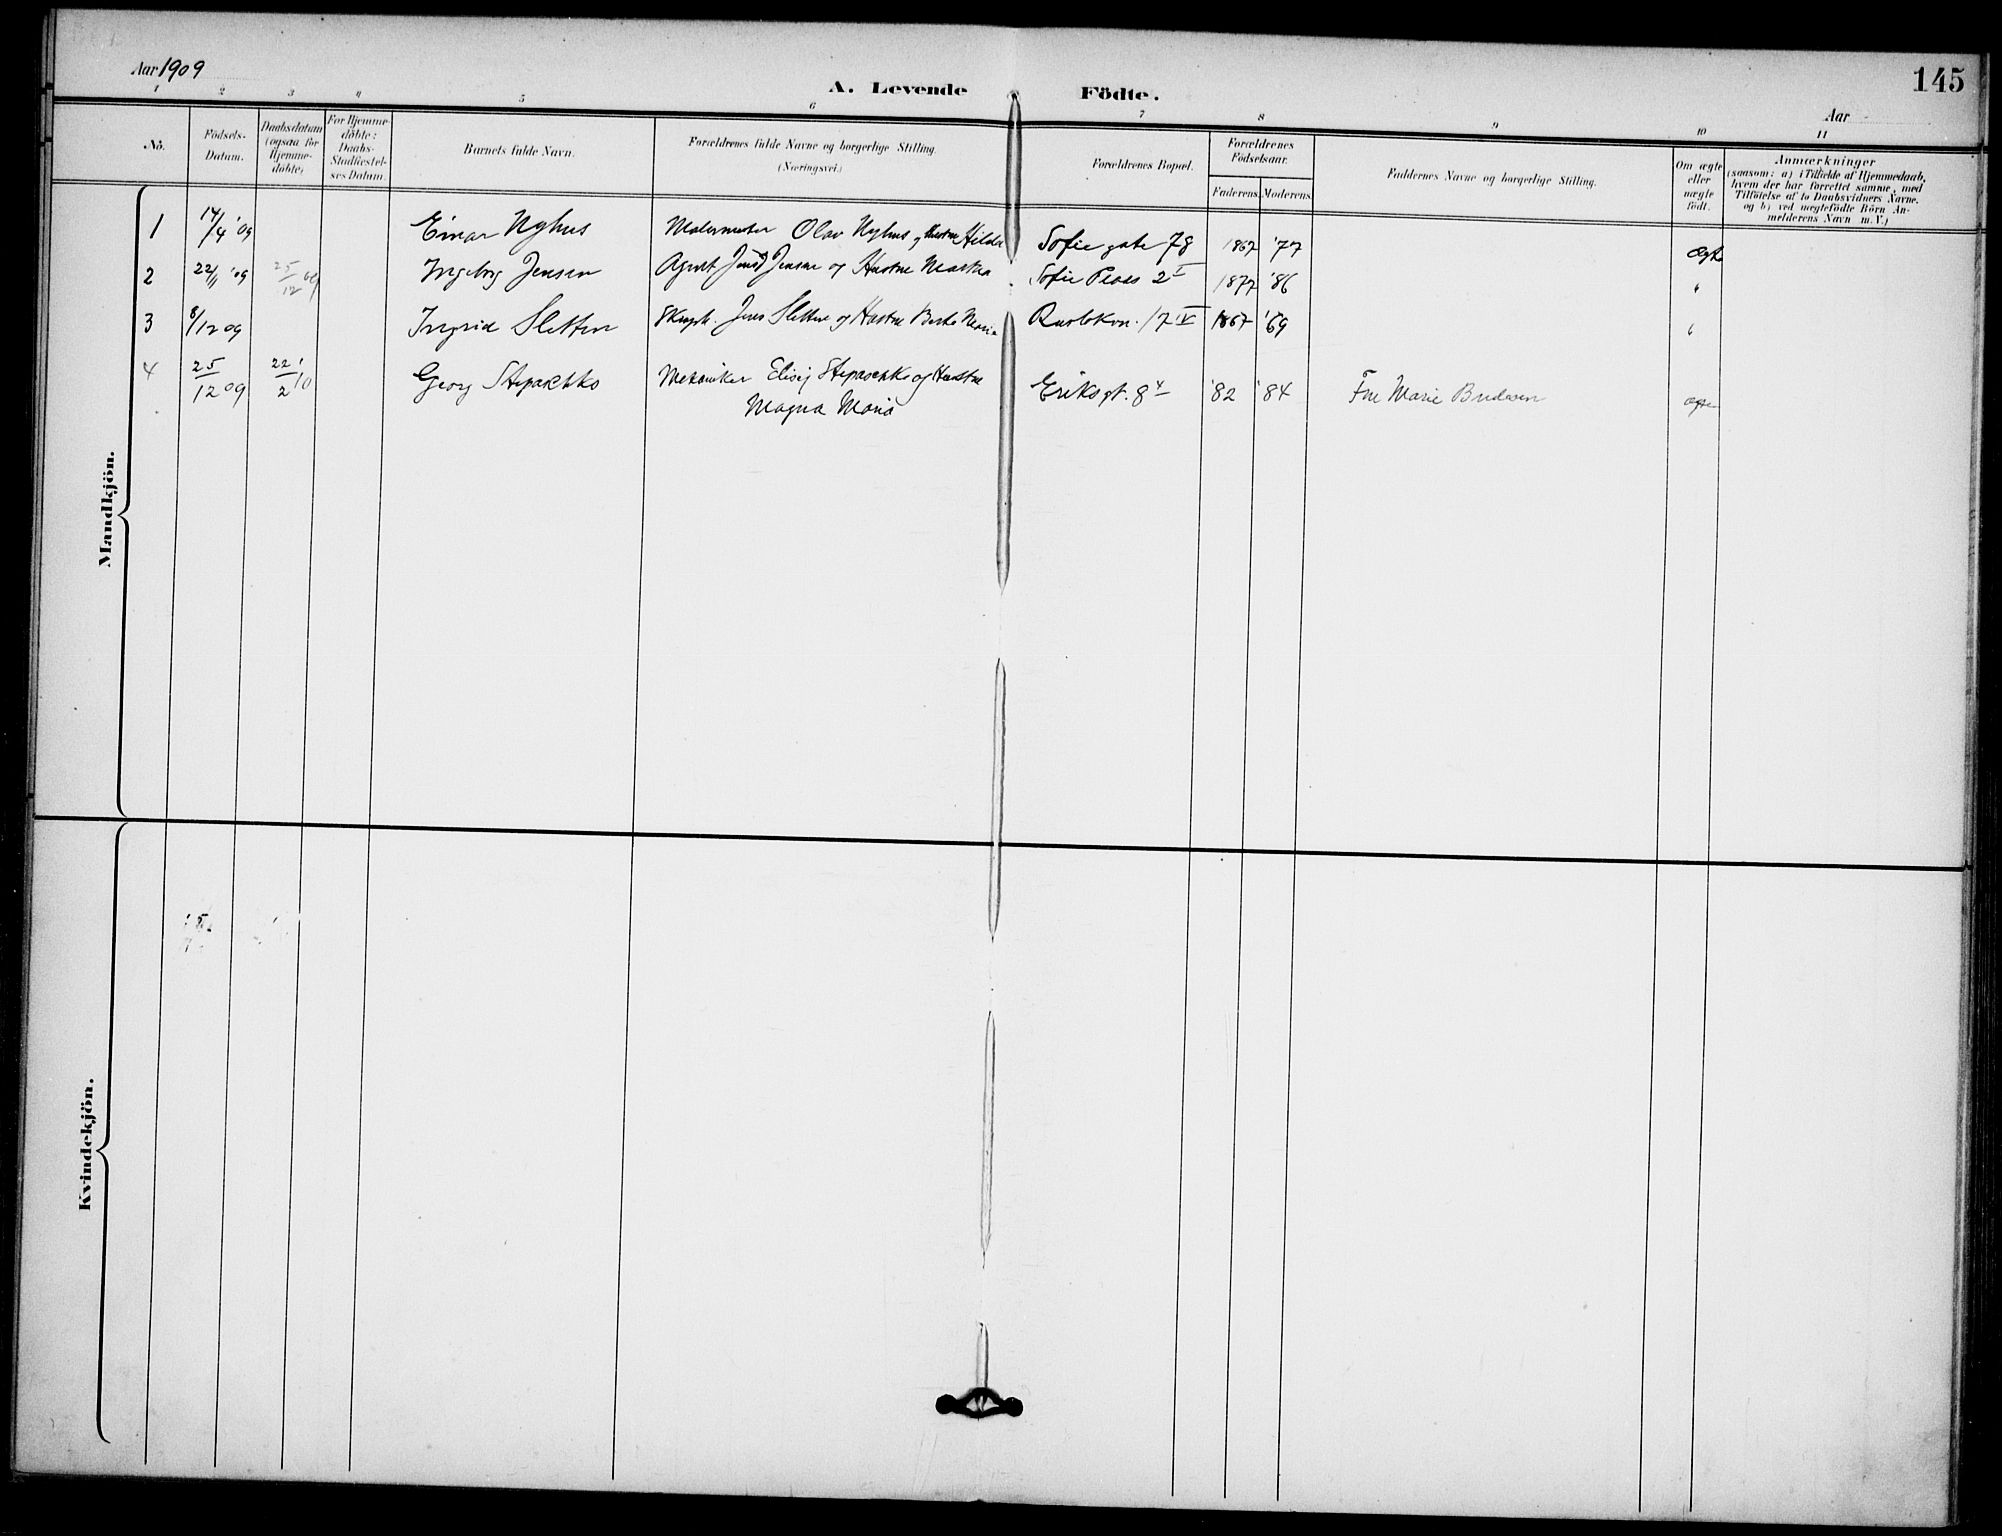 Aar 1909
A. Levende Födte.
145
Aar
1 2 3 4 5 6 7 8 9 10 11
No.
Födsels-Datum.
Daabsdatum (ogsaa for Hjemme-döbte)
For Hjemme-döbte: Daabs-Stadfæstel-ses Datum.
Barnets fulde Navn.
Forældrenes fulde Navne og borgerlige Stilling. (Næringsvei.)
Forældrenes Bopæl.
Forældrenes Födselsaar.
Faderens Moderens
Faddernes Navne og borgerlige Stilling.
Om ægte eller uægte födt.
Anmærkninger
(saasom: a) i Tilfælde af Hjemmedaab,
hvem der har forrettet samme, med
Tilföielse af to Daabsvidners Navne.
og b) ved uægtefödte Börn An-
melderens Navn m. V.)
Mandkjön.
1 14/4 '09 Einar Nyhus Malermester Olav Nyhus og Hustru Hilda Sofie gate 78 1867 '77 Ægte
2 22/11 '09 25/12 09 Ingeborg Jensen Agent Jensen og Hustru Martha Sofie Plads 2 I 1877 '86 "
3 8/12 09 Ingrid Sletten Jens Sletten og Hustru Maria 17 IV 1867 '69 "
4 25/12 09 22/2 '10 Georg Stepaschko Mekaniker Elisej Stepaschko og Hustru
Magna Maria Eriksgt. 8 '82 '84 Marie ægte
Kvindekjön.